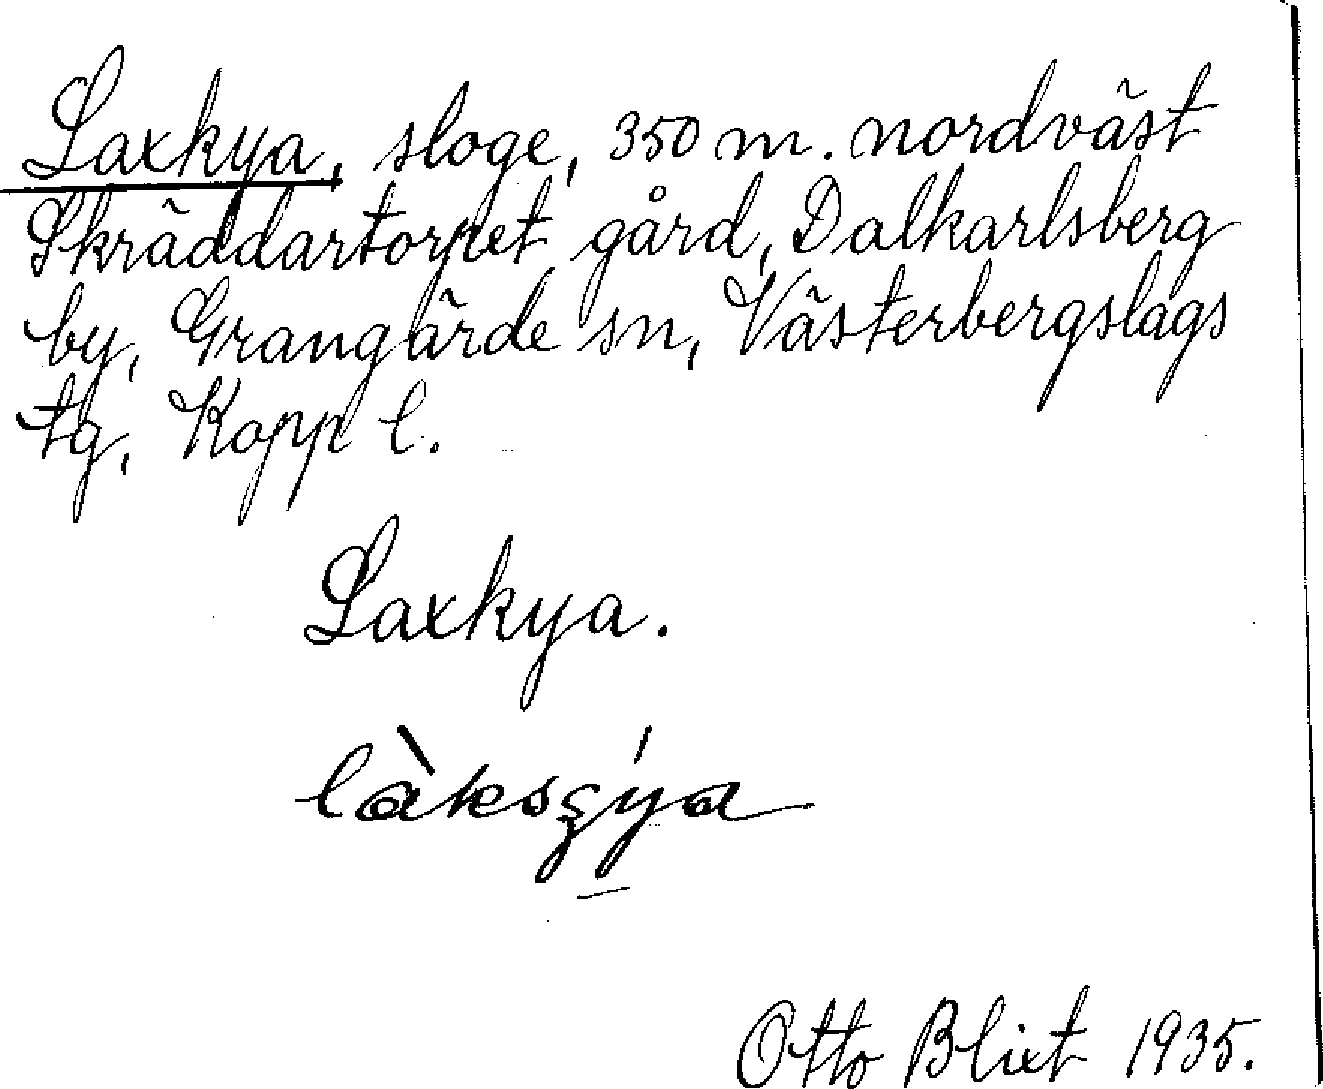 Laxkya, sloge, 350 m. nordväst
Skräddartorpet gård, Dalkarlsberg
by, Grangärde sn, Västerbergslags
tg, Kopp l.
Laxkya.
Otto Blixt 1935.